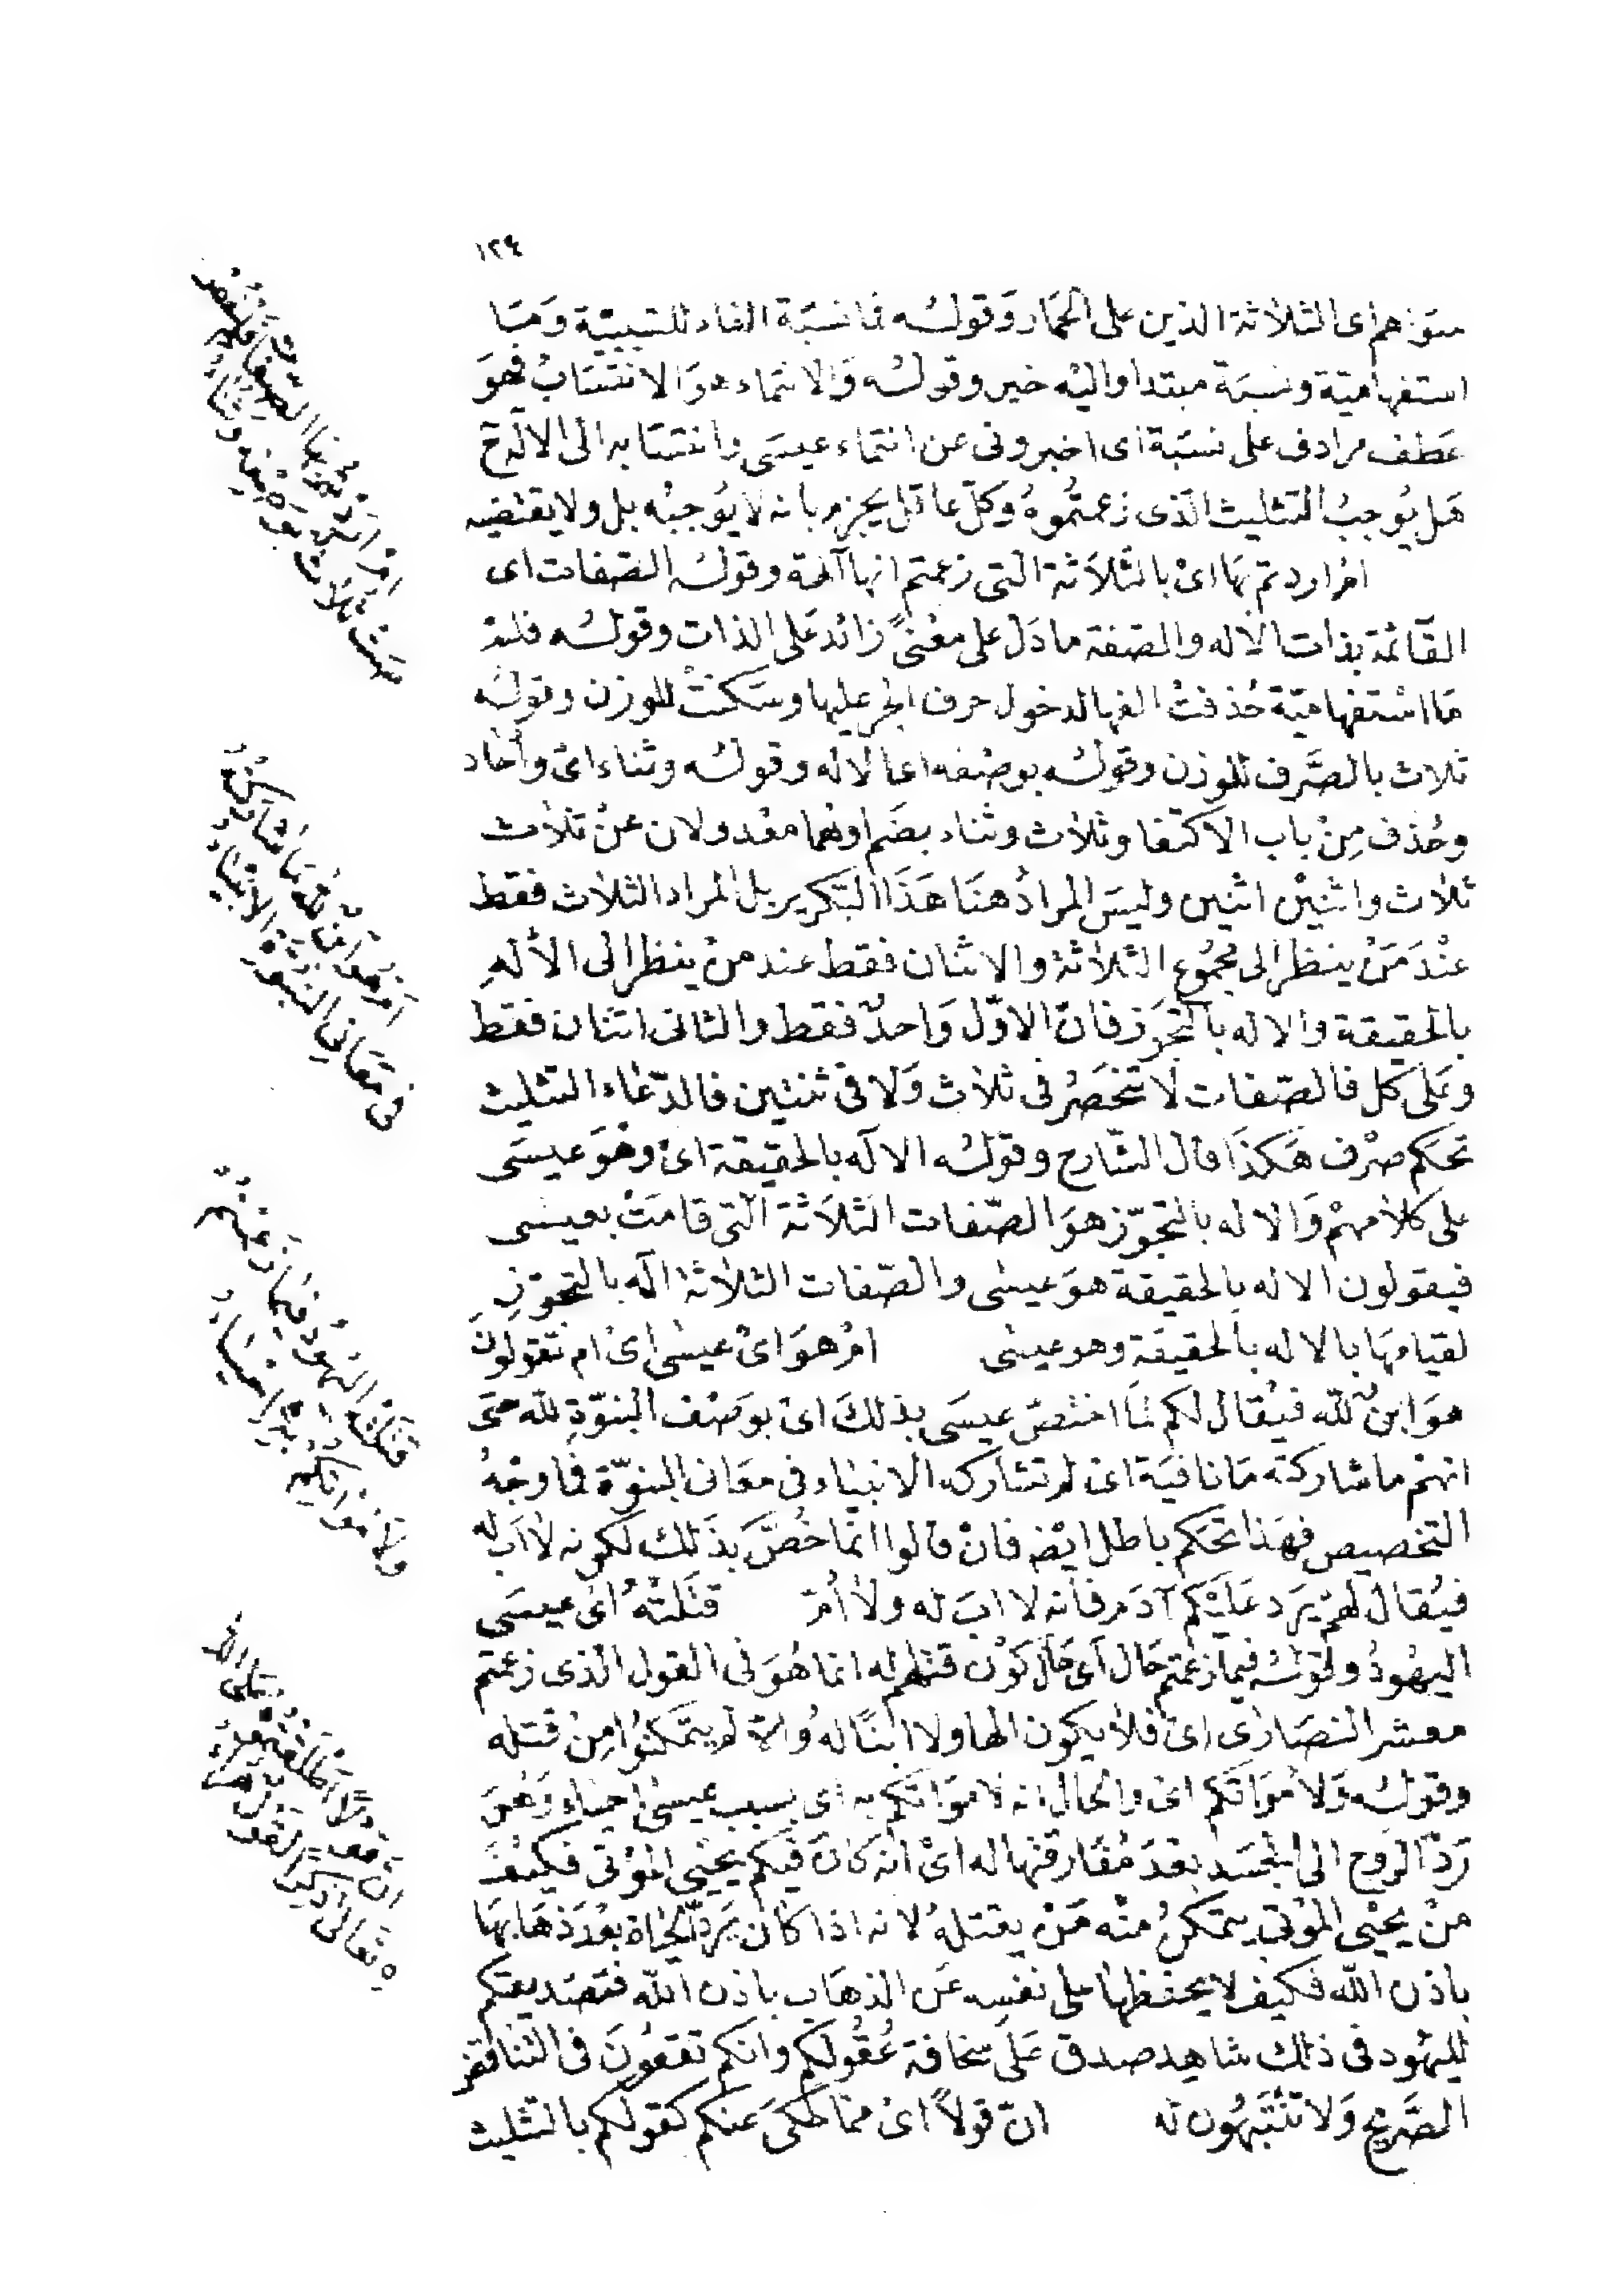 ١٢٤
سواهم اى الثلاثة الذين على الحمار وقوله فما نسبة الفاء للسببية وما
استفهامية ونسبة مبتدا واليه خبر وقوله والانتماء هو الانتساب فهو
عطف مرادف على نسبة اى اخبرونى عن انتماء عيسى وانتسابه الى الاله
هل يُوجبُ التثليث الذى زعمتموهُ وكل عاقل يجزم بانه لا يُوجبُه بل ولا يقتضيه
ام اردتم بها اىْ بالثلاثة التى زعمتم انها آلهة وقوله الصفات اى
القائمة بذات الاله والصفة ما دل على معنىً زائد على الذات وقوله فلمْ
ما استفهامية حُذفتْ الفها لدخول حرف الجر عليها وسكنتْ للوزن وقوله
ثلاث بالصَّرف للوزن وقوله بوصفه اى الاله وقوله وثناء اىْ وأحاد
وحُذف مِنْ باب الاكتفا وثلاث وثناء بضم اولهما معدولان عنْ ثلاث
ثلاث واثنيْن اثنين وليس المرادُ هنا هذا التكرير بل المراد الثلاث فقط
عنْد مَنْ ينظر الى مجمُوع الثلاثة والاثنان فقط عند منْ ينظر الى الألهِ
بالحقيقة والاله بالتجوز فانّ الاوّل واحدٌ فقط والثانى اثنان فقط
وعلى كل فالصّفات لا تنحصرُ فى ثلاث ولا فى ثنتين فالدّعاء التثليث
تحكم صرْف هكذا قال الشّارح وقوله الاله بالحقيقة اىْ وهُو عيسى
على كلامهمْ والاله بالتجوّز هو الصّفات الثلاثة التى قامتْ بعيسى
فيقولون الاله بالحقيقة هو عيسى والصّفات الثلاثة اله بالتجوّزِ
لقيامها بالاله بالحقيقة وهو عيسى امْ هو اىْ عيسى اىْ ام تقولون
هو ابنُ لله فيُقال لكم لما اختصّ عيسى بذلك اىْ بوصْف البنوّةِ لله حتى
انهمْ ما شاركته ما نافية اىْ لم تشاركه الانبياء فى معانى البنوّة فما وجْهُ
التخصيص فهذا تحكم باطل ايْضا فانْ قالوا انما خُصّ بذلك لكونه لا اب له
فيُقال لهمْ يرد علَيْكم آدم فانه لا اب له ولا أمّ قتلتْهُ اىْ عيسى
اليهُودُ وقولهُ فيما زعمتم حال اى حال كوْن قتلهم له انما هُو فى القول الذى زعمتم
معشر النصارى اىْ فلا يكون الها ولا ابناً لهُ والا لم يتمكنُوا مِنْ قتله
وقولهُ ولامواتكم اىْ والحال انه لامواتكم به اى بسبب عيسى احياء وهُو
ردّ الروح الى الجسد بعد مُفارقتها له اىْ انه كان فيكم يحْيى الموْتى فكيْفَ
منْ يحْيى الموْتى يتمكنُ منْه مَنْ يقتلهُ لانه اذا كان يردّ الحياة بعْد ذهابها
باذن اللّه فكيف لا يحفظها على نفسِه عن الذهاب باذن اللّه فتصْديقكم
لليهُود فى ذلك شاهد صدق على سخافة عُقُولكم وانكم تقعُونَ فى التناقض
الصَّريح ولا تنتبهُون له انّ قولاً اىْ مما حكى عنكم كقولكم بالتثليث
امْ اردتم بها الصفات فلم
خصت ثلاث بوصفه وثناء
ام هو ابن لله ما شاركته
فى معانى النبوة الانبياء
قتلته اليهود فيما زعمتم
ولامواتكم به احياء
ان قولا اطلقتموه على الله
تعالى ذكرا لقول هراء